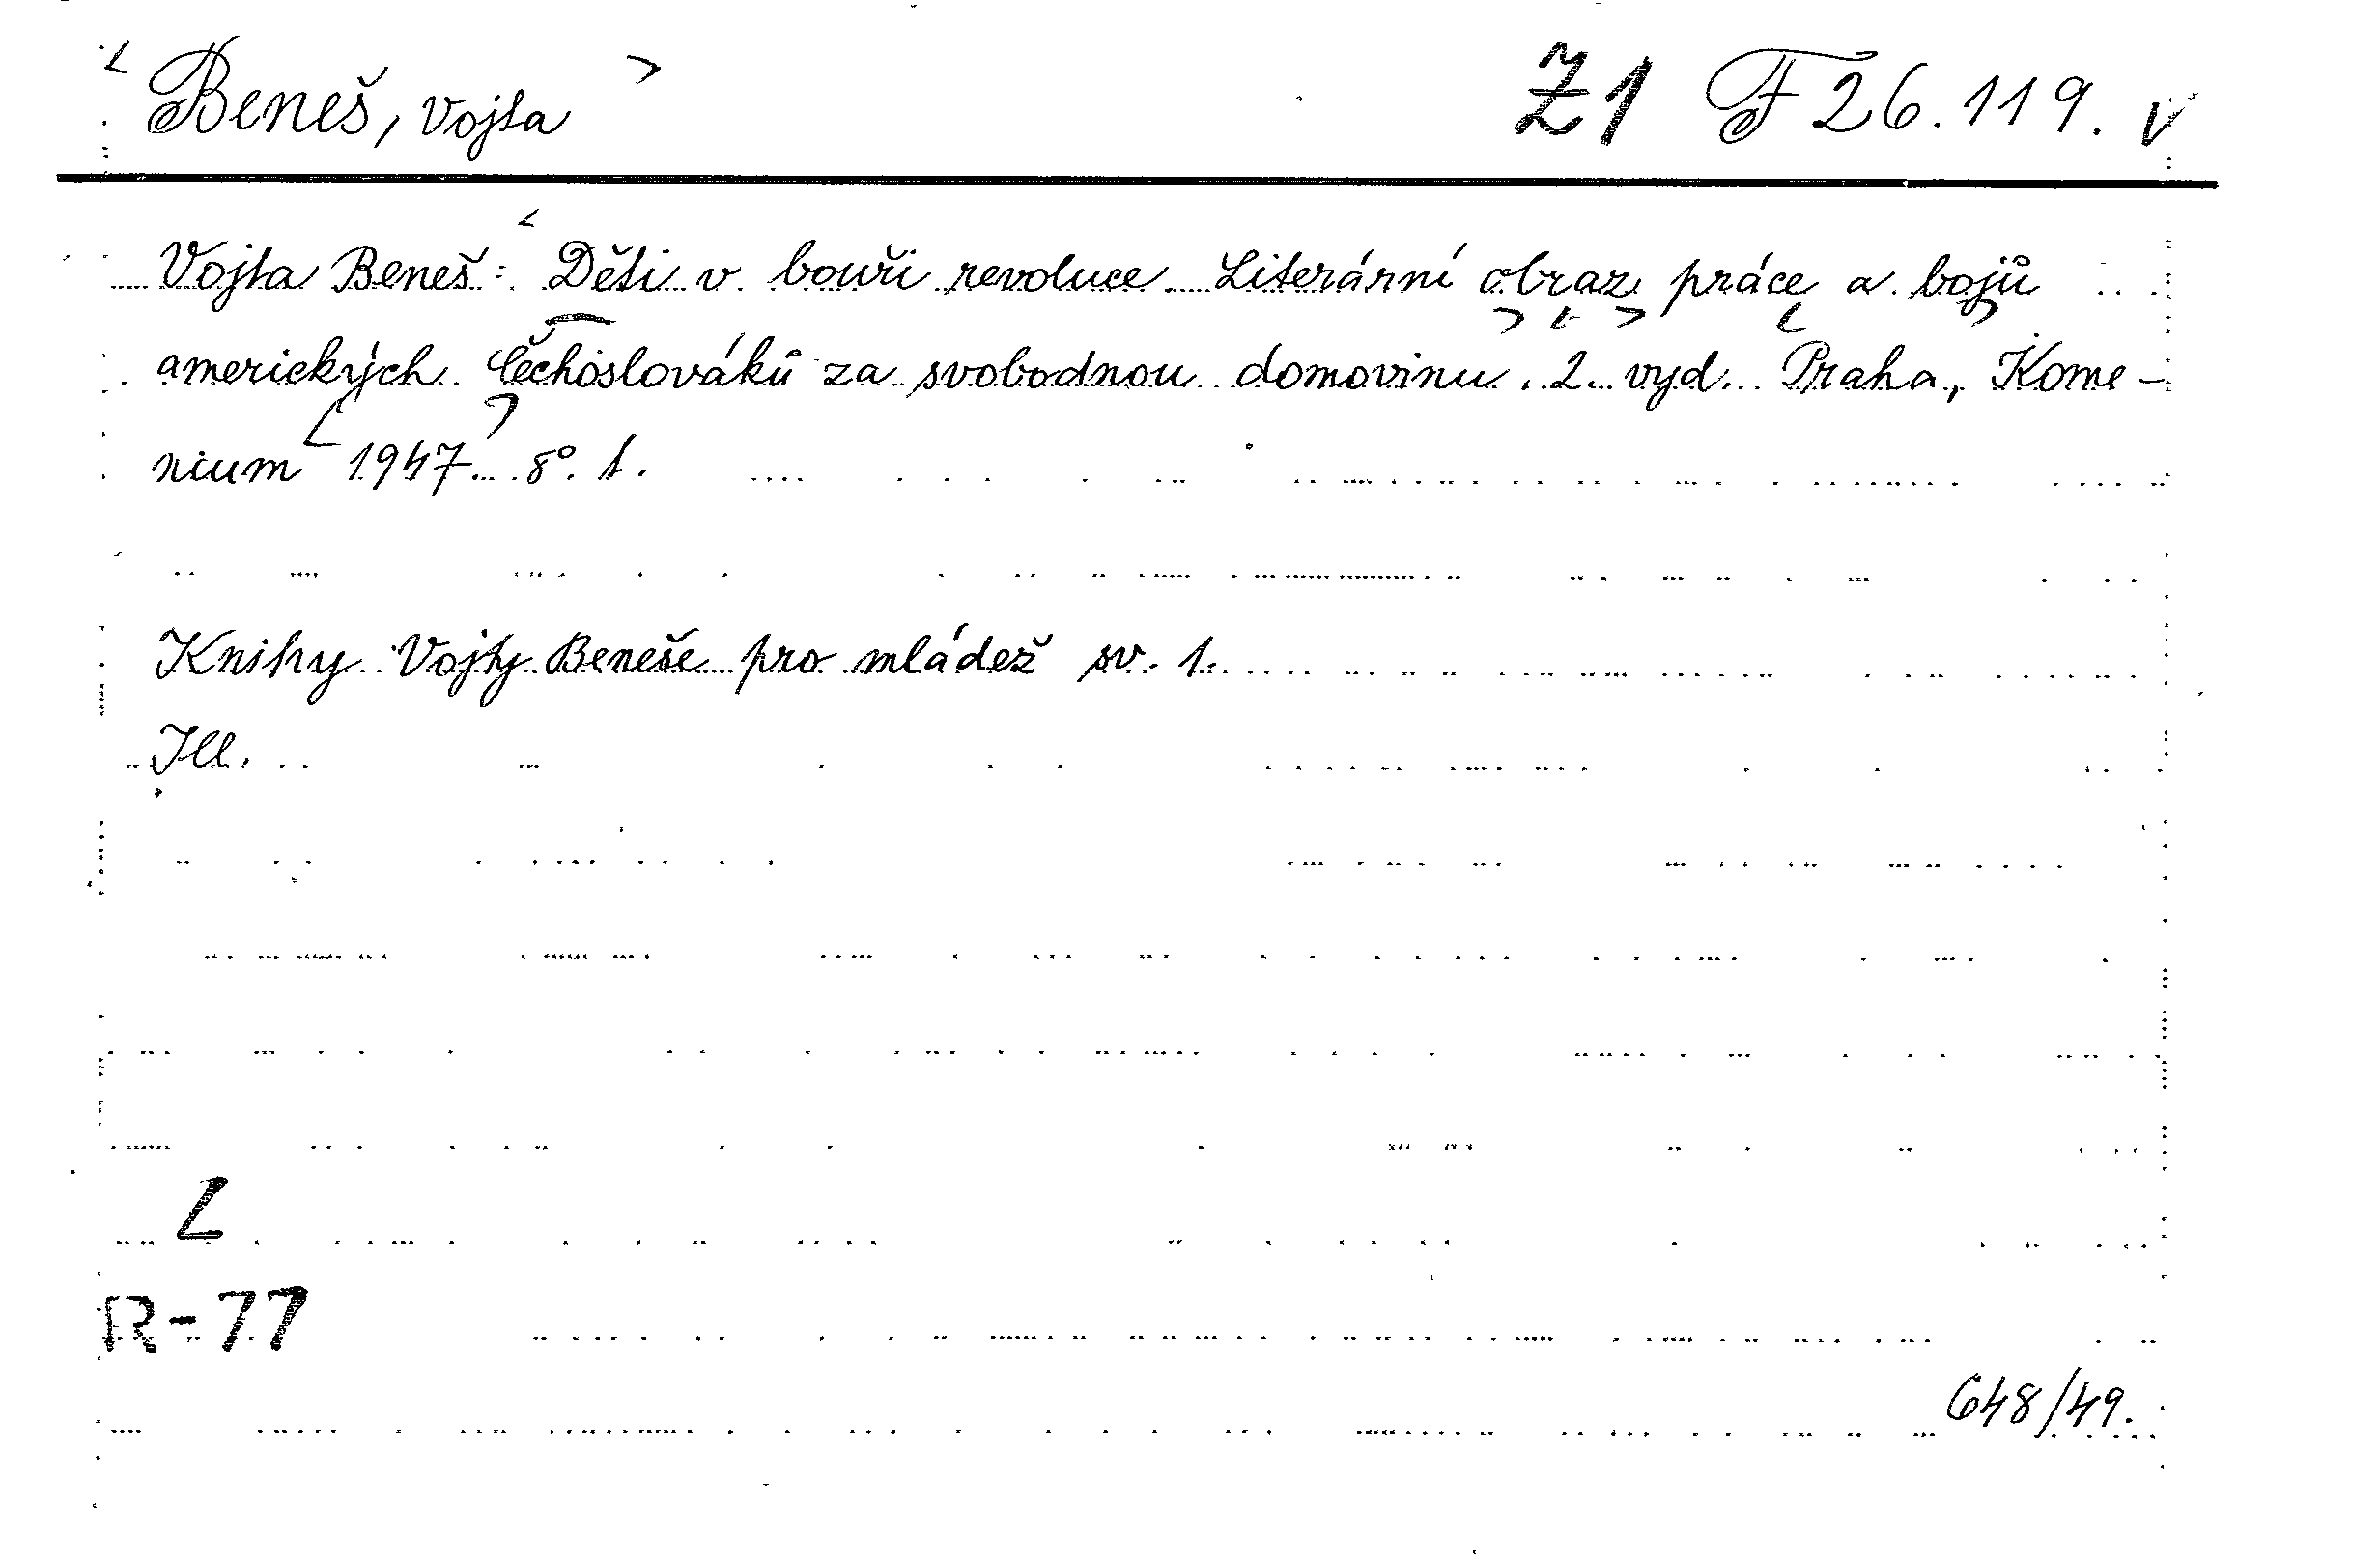 Beneš, Vojta Z1 F 26.119. v
Vojta Beneš: Děti v bouři revoluce. Literární obraz práce a bojů
amerických Čechoslováků za svobodnou domovinu. 2. vyd. Praha, Kome-
nium 1947. 8°. 1.
Knihy Vojty Beneše pro mládež sv. 1.
Ill.
L
R-77
648/49.